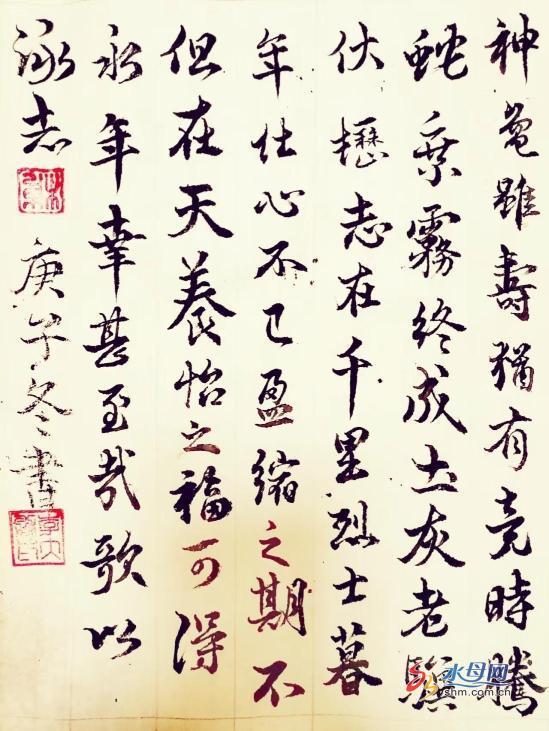 神龜雖壽猶有竟時騰
蛇乘霧終成土灰老驥
伏櫪志在千里烈士暮
年壮心不已盈縮之期不
但在天養怡之福可得
永年幸甚至哉歌以
詠志
庚子冬書
水母网
shm.com.cn